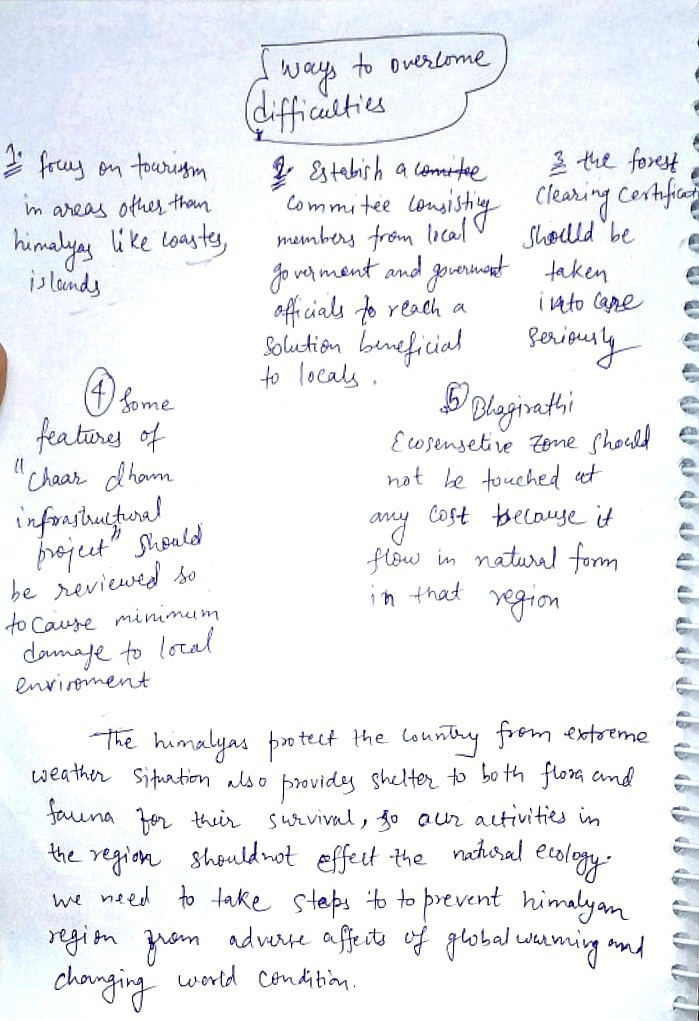 ways to overcome
difficulties
1. focus on tourism
in areas other than
himalyas like coastes,
islands
2. Estebish a comitee
Commitee consisting
members from local
goverment and goverment
officials to reach a
solution beneficial
to locals.
3 the forest
Clearing Certificat
should be
taken
into care
seriously
4 Some
features of
"Chaar dham
infrastructural
project" should
be reviewed so
to cause minimum
damage to local
enviroment
5 Bhagirathi
Ecosensetive zone should
not be touched at
any cost because it
flow in natural form
in that region
The himalyas protect the country from extreme
weather situation also provides shelter to both flora and
fauna for their survival, so our activities in
the region should not effect the natural ecology.
we need to take steps to to prevent himalyan
region from adverse affects of global warming and
changing world condition.